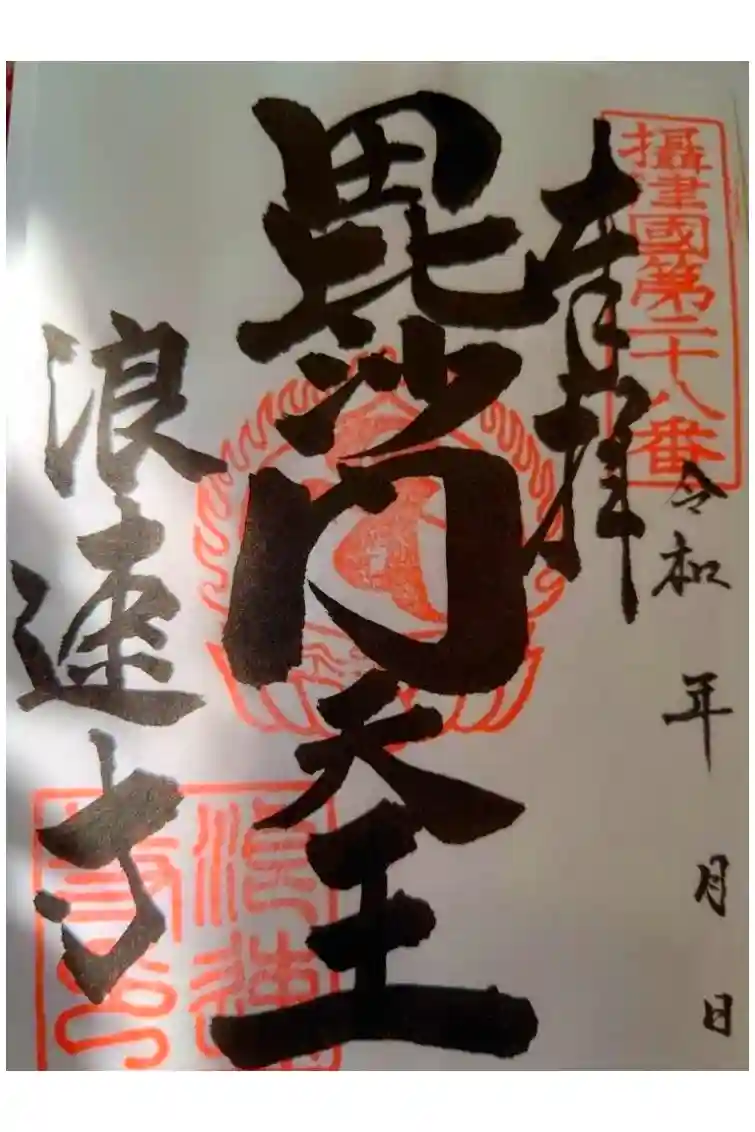 攝津國第二十八番
奉拝
令和 年 月 日
毘沙門天王
浪速寺